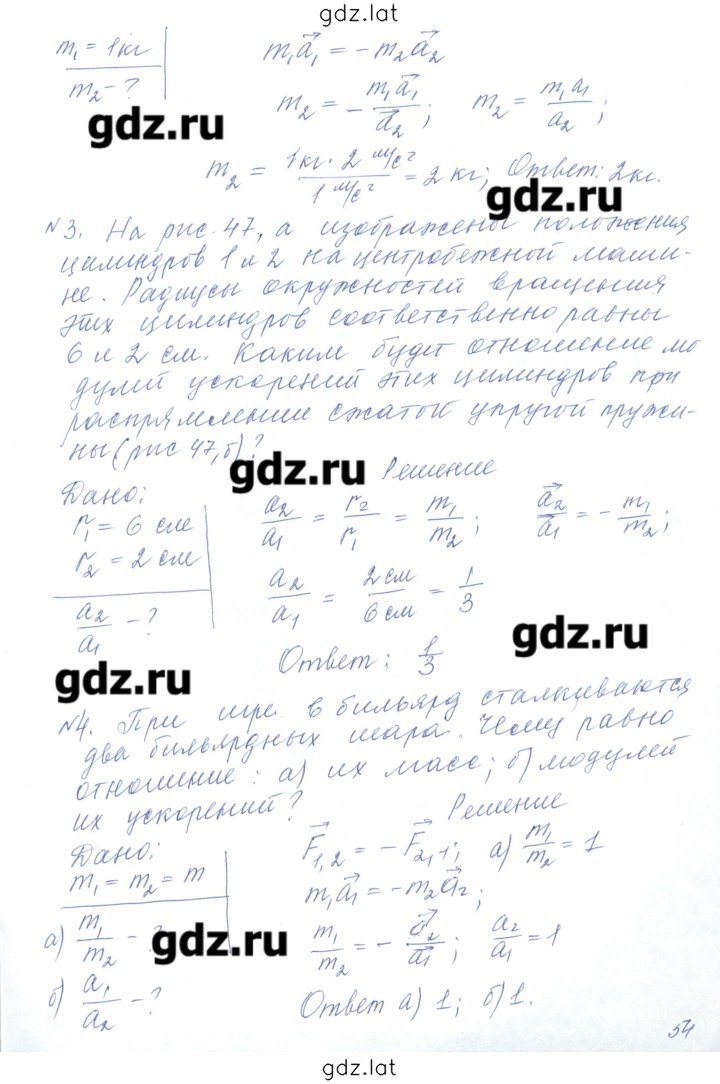 gdz.lat
m₁ = 1кг
m₂ - ?
m₁a⃗₁ = -m₂a⃗₂
m₂ = - m₁a⃗₁/a⃗₂; m₂ = m₁a₁/a₂;
gdz.ru
m₂ = 1кг · 2 м/с² / 1 м/с² = 2 кг; Ответ: 2кг.
gdz.ru
№3. На рис. 47, а изображены положения
цилиндров 1 и 2 на центробежной маши-
не. Радиусы окружностей вращения
этих цилиндров соответственно равны
6 и 2 см. Каким будет отношение мо
дулей ускорений этих цилиндров при
распрямлении сжатой упругой пружи-
ны (рис 47, б)?
gdz.ru
Решение
Дано:
r₁ = 6 см
r₂ = 2 см
a₂/a₁ - ?
a₂/a₁ = r₂/r₁ = m₁/m₂; a⃗₂/a⃗₁ = - m₁/m₂;
a₂/a₁ = 2 см/6 см = 1/3
gdz.ru
Ответ: 1/3
gdz.ru
№4. При игре в бильярд сталкиваются
два бильярдных шара. Чему равно
отношение: а) их масс; б) модулей
их ускорений?
Решение
Дано:
m₁ = m₂ = m
а) m₁/m₂ - ?
б) a₁/a₂ - ?
F⃗₁,₂ = -F⃗₂,₁; а) m₁/m₂ = 1
m₁a⃗₁ = -m₂a⃗₂;
gdz.ru
m₁/m₂ = - a⃗₂/a⃗₁; a₂/a₁ = 1
gdz.ru
Ответ а) 1; б) 1.
54
gdz.lat